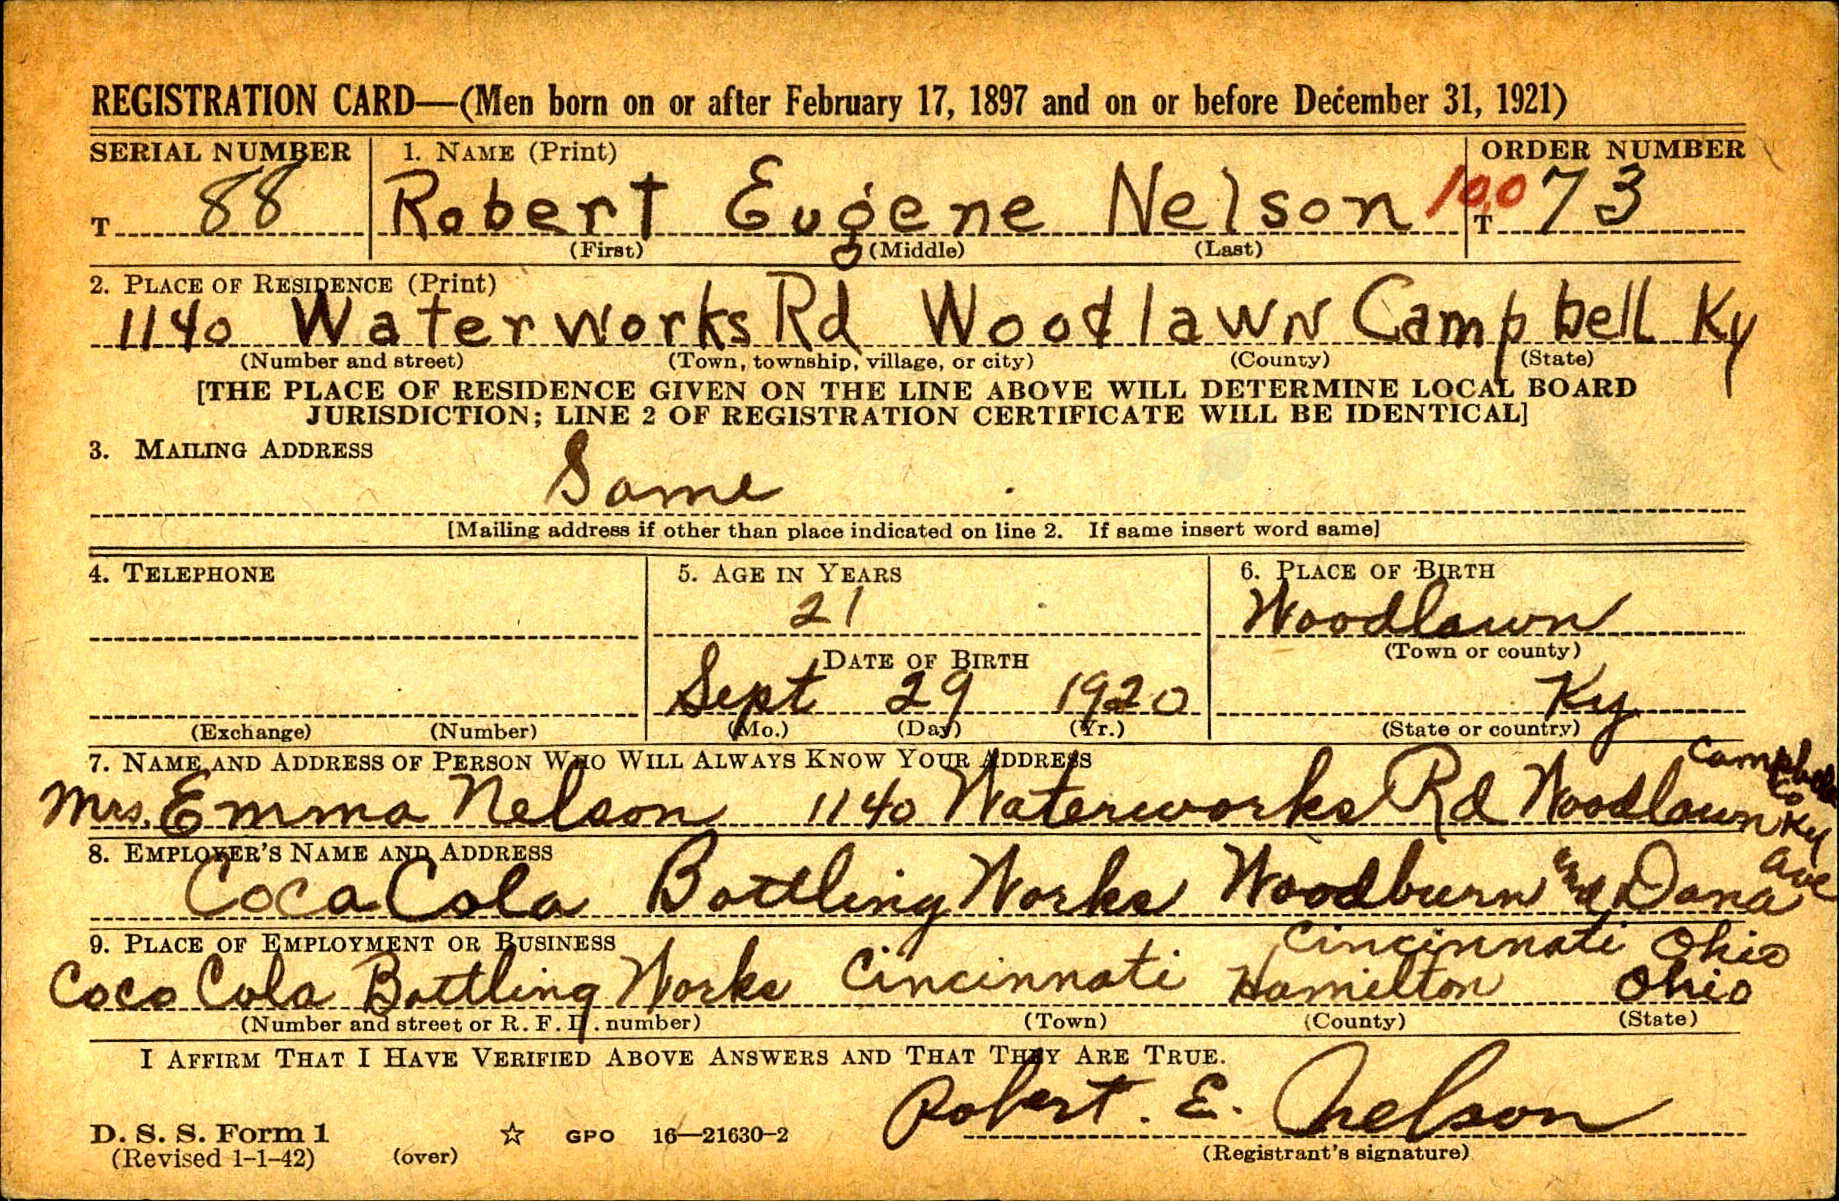 REGISTRATION CARD—(Men born on or after February 17, 1897 and on or before December 31, 1921)
SERIAL NUMBER 1. NAME (Print) ORDER NUMBER
T 88 Robert Eugene Nelson 10,073 T
(First) (Middle) (Last)
2. PLACE OF RESIDENCE (Print)
1140 Water works Rd Woodlawn Campbell Ky
(Number and street) (Town, township, village, or city) (County) (State)
[THE PLACE OF RESIDENCE GIVEN ON THE LINE ABOVE WILL DETERMINE LOCAL BOARD
JURISDICTION; LINE 2 OF REGISTRATION CERTIFICATE WILL BE IDENTICAL]
3. MAILING ADDRESS
Same
[Mailing address if other than place indicated on line 2. If same insert word same]
4. TELEPHONE 5. AGE IN YEARS 6. PLACE OF BIRTH
21 Woodlawn
DATE OF BIRTH (Town or county)
Sept 29 1920 Ky
(Exchange) (Number) (Mo.) (Day) (Yr.) (State or country)
7. NAME AND ADDRESS OF PERSON WHO WILL ALWAYS KNOW YOUR ADDRESS
Mrs. Emma Nelson 1140 Waterworks Rd Woodlawn Campbell Co Ky
8. EMPLOYER'S NAME AND ADDRESS
Coca Cola Bottling Works Woodburn and Dana Ave
9. PLACE OF EMPLOYMENT OR BUSINESS Cincinnati Ohio
Coco Cola Bottling Works Cincinnati Hamilton Ohio
(Number and street or R. F. D. number) (Town) (County) (State)
I AFFIRM THAT I HAVE VERIFIED ABOVE ANSWERS AND THAT THEY ARE TRUE.
Robert. E. Nelson
D. S. S. Form 1
(Revised 1-1-42) (over) ☆ GPO 16—21630-2 (Registrant's signature)